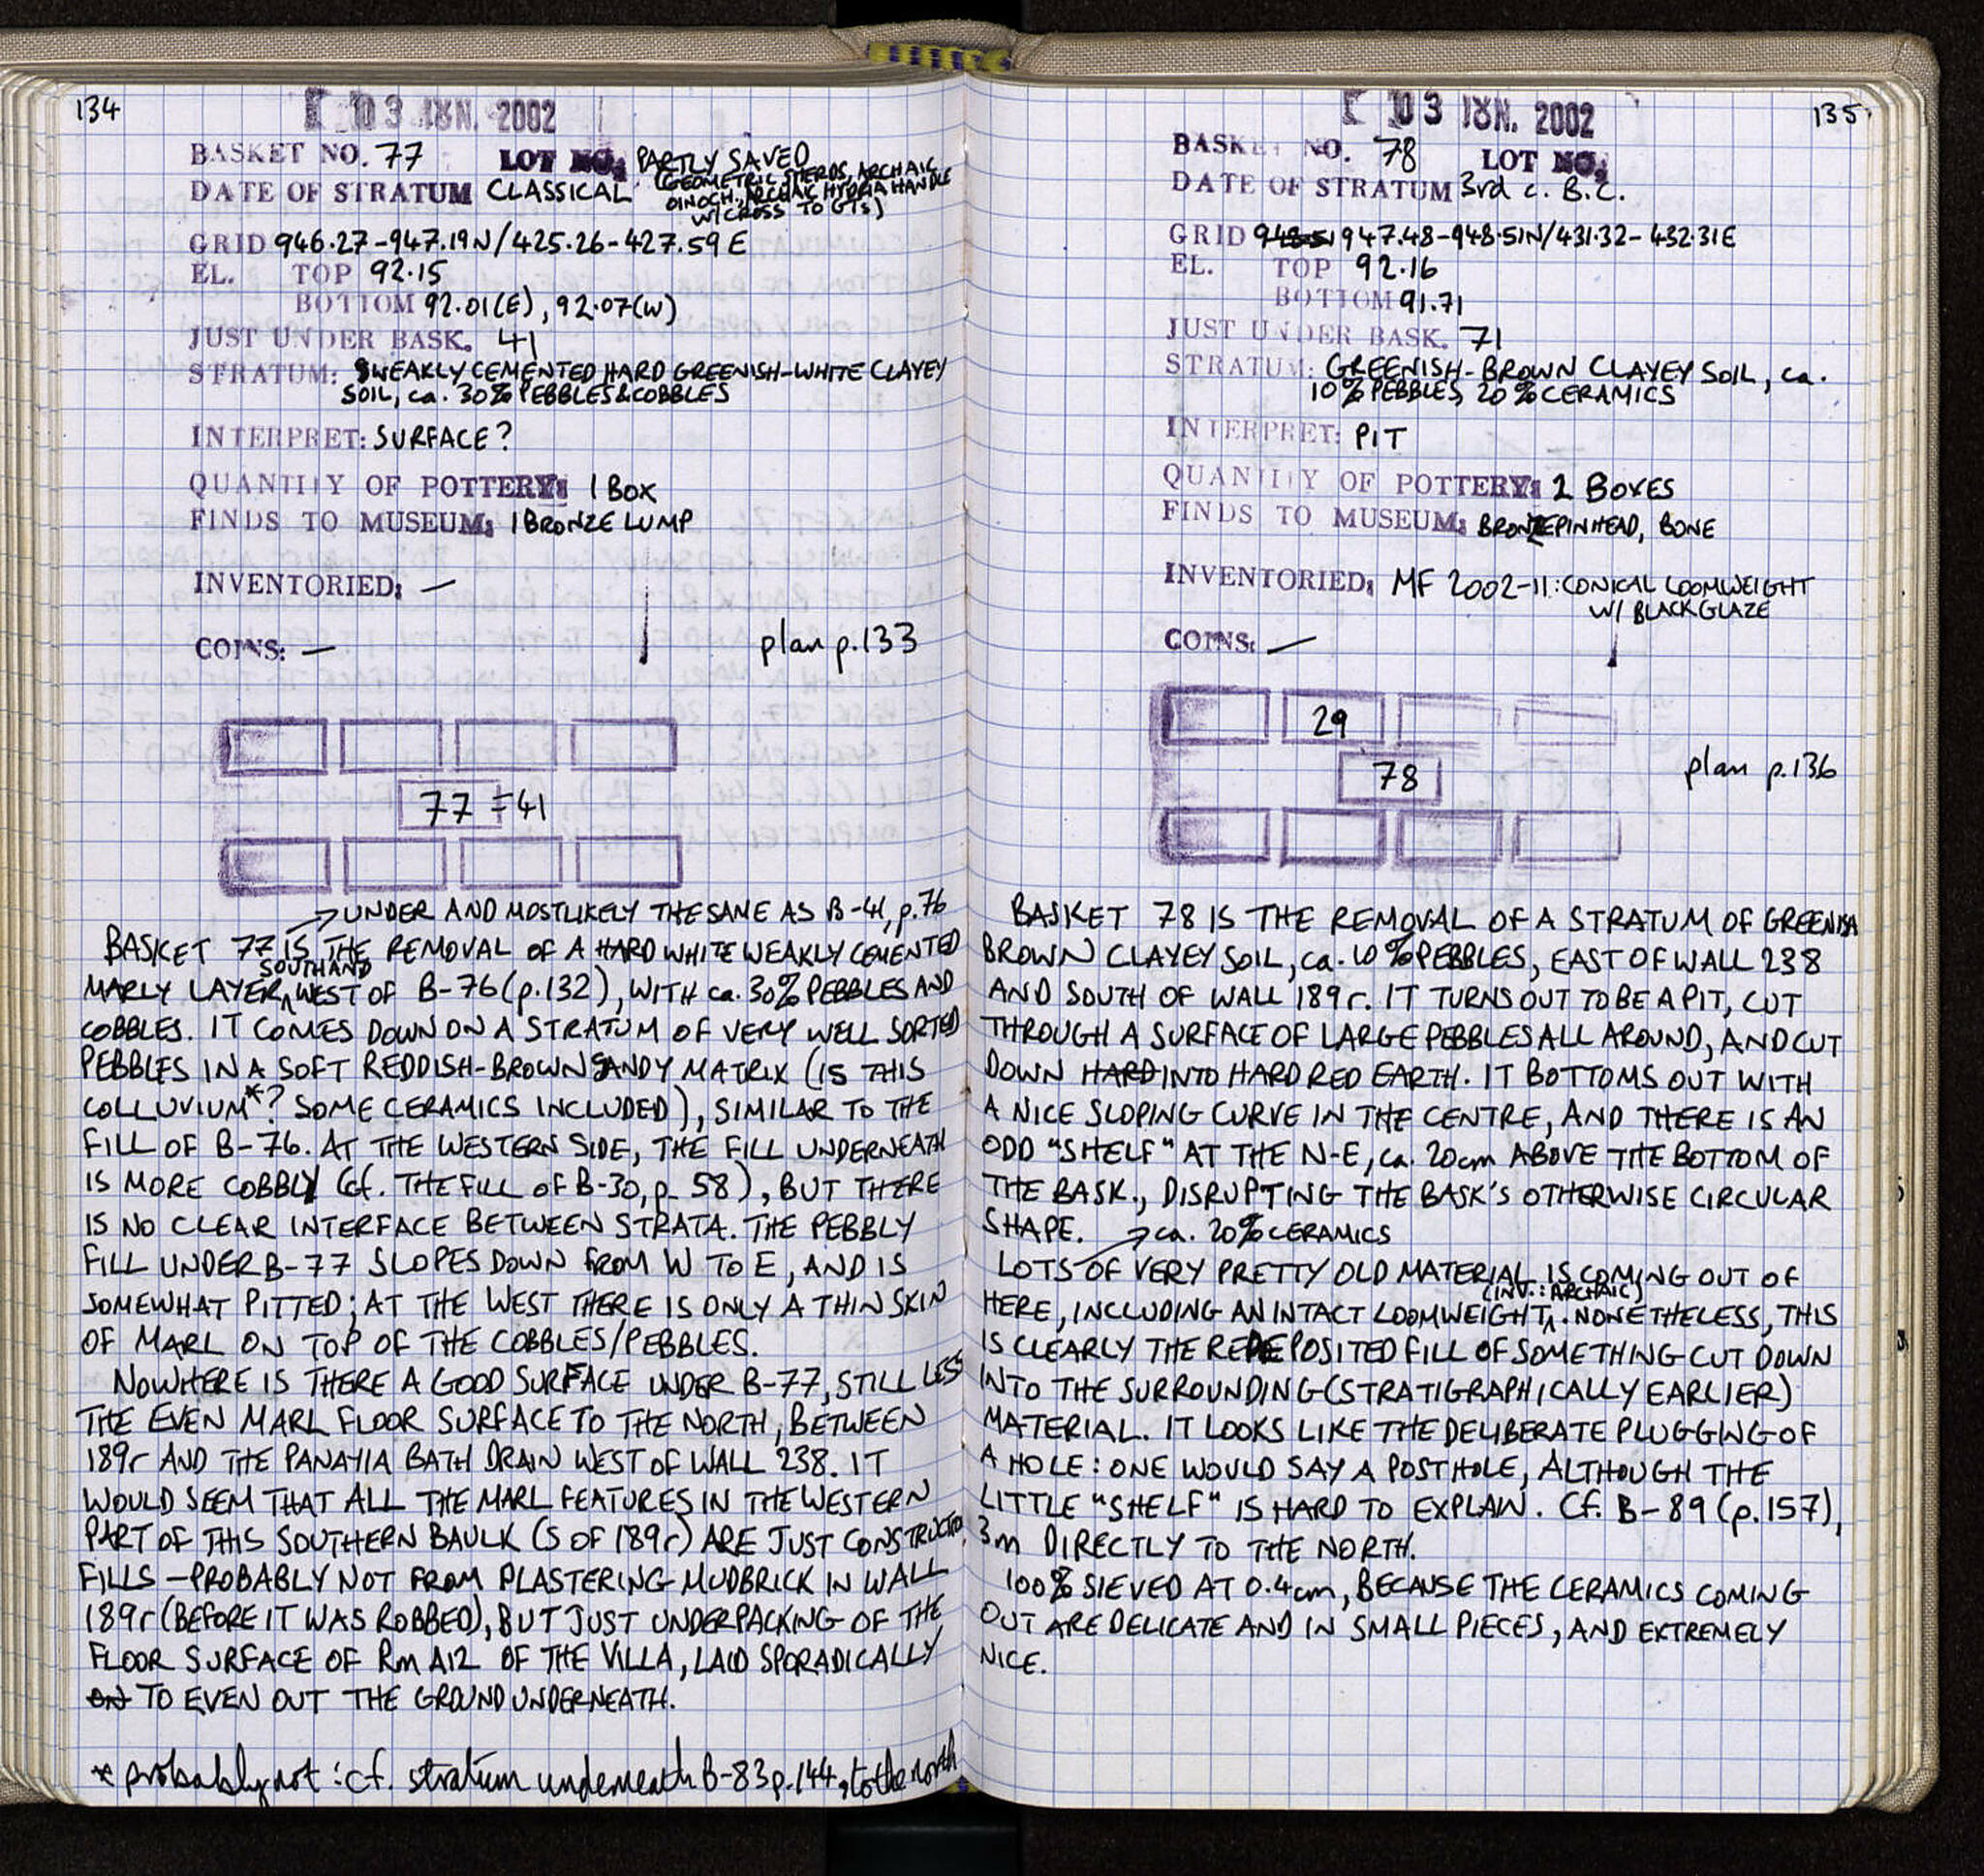 134
03 JUN. 2002
BASKET NO. 77 LOT NO. PARTLY SAVED
(GEOMETRIC SHERDS, ARCHAIC
DATE OF STRATUM CLASSICAL OINOCH., ARCHAIC HYDRIA HANDLE
W/ CROSS TO GTS)
GRID 946.27-947.19N/425.26-427.59E
EL. TOP 92.15
BOTTOM 92.01(E), 92.07(W)
JUST UNDER BASK. 41
STRATUM: WEAKLY CEMENTED HARD GREENISH-WHITE CLAYEY
SOIL, ca. 30% PEBBLES & COBBLES
INTERPRET: SURFACE?
QUANTITY OF POTTERY: 1 BOX
FINDS TO MUSEUM: 1 BRONZE LUMP
INVENTORIED: —
COINS: — plan p.133
77 = 41
→ UNDER AND MOST LIKELY THE SAME AS B-41, p.76
BASKET 77 IS THE REMOVAL OF A HARD WHITE WEAKLY CEMENTED
SOUTH AND
MARLY LAYER, WEST OF B-76 (p.132), WITH ca. 30% PEBBLES AND
COBBLES. IT COMES DOWN ON A STRATUM OF VERY WELL SORTED
PEBBLES IN A SOFT REDDISH-BROWN SANDY MATRIX (IS THIS
COLLUVIUM*? SOME CERAMICS INCLUDED), SIMILAR TO THE
FILL OF B-76. AT THE WESTERN SIDE, THE FILL UNDERNEATH
IS MORE COBBLY (cf. THE FILL OF B-30, p. 58), BUT THERE
IS NO CLEAR INTERFACE BETWEEN STRATA. THE PEBBLY
FILL UNDER B-77 SLOPES DOWN FROM W TO E, AND IS
SOMEWHAT PITTED; AT THE WEST THERE IS ONLY A THIN SKIN
OF MARL ON TOP OF THE COBBLES/PEBBLES.
NOWHERE IS THERE A GOOD SURFACE UNDER B-77, STILL LESS
THE EVEN MARL FLOOR SURFACE TO THE NORTH, BETWEEN
189r AND THE PANAYIA BATH DRAIN WEST OF WALL 238. IT
WOULD SEEM THAT ALL THE MARL FEATURES IN THE WESTERN
PART OF THIS SOUTHERN BAULK (S OF 189r) ARE JUST CONSTRUCTED
FILLS - PROBABLY NOT FROM PLASTERING MUDBRICK IN WALL
189r (BEFORE IT WAS ROBBED), BUT JUST UNDERPACKING OF THE
FLOOR SURFACE OF Rm A12 OF THE VILLA, LAID SPORADICALLY
ON TO EVEN OUT THE GROUND UNDERNEATH.
* probably not: cf. stratum underneath B-83 p.144, to the north
135
03 JUN. 2002
BASKET NO. 78 LOT NO.
DATE OF STRATUM 3rd c. B.C.
GRID 948.51 947.48-948.51N/431.32-432.31E
EL. TOP 92.16
BOTTOM 91.71
JUST UNDER BASK. 71
STRATUM: GREENISH-BROWN CLAYEY SOIL, ca.
10% PEBBLES, 20% CERAMICS
INTERPRET: PIT
QUANTITY OF POTTERY: 2 BOXES
FINDS TO MUSEUM: BRONZE PINHEAD, BONE
INVENTORIED: MF 2002-11: CONICAL LOOMWEIGHT
W/ BLACK GLAZE
COINS: —
29
78
plan p.136
BASKET 78 IS THE REMOVAL OF A STRATUM OF GREENISH
BROWN CLAYEY SOIL, ca. 10% PEBBLES, EAST OF WALL 238
AND SOUTH OF WALL 189r. IT TURNS OUT TO BE A PIT, CUT
THROUGH A SURFACE OF LARGE PEBBLES ALL AROUND, AND CUT
DOWN HARD INTO HARD RED EARTH. IT BOTTOMS OUT WITH
A NICE SLOPING CURVE IN THE CENTRE, AND THERE IS AN
ODD "SHELF" AT THE N-E, ca. 20cm ABOVE THE BOTTOM OF
THE BASK., DISRUPTING THE BASK'S OTHERWISE CIRCULAR
SHAPE. → ca. 20% CERAMICS
LOTS OF VERY PRETTY OLD MATERIAL IS COMING OUT OF
(INV.: ARCHAIC)
HERE, INCLUDING AN INTACT LOOMWEIGHT. NONETHELESS, THIS
IS CLEARLY THE REDEPOSITED FILL OF SOMETHING CUT DOWN
INTO THE SURROUNDING (STRATIGRAPHICALLY EARLIER)
MATERIAL. IT LOOKS LIKE THE DELIBERATE PLUGGING OF
A HOLE: ONE WOULD SAY A POSTHOLE, ALTHOUGH THE
LITTLE "SHELF" IS HARD TO EXPLAIN. Cf. B-89 (p.157),
3m DIRECTLY TO THE NORTH.
100% SIEVED AT 0.4cm, BECAUSE THE CERAMICS COMING
OUT ARE DELICATE AND IN SMALL PIECES, AND EXTREMELY
NICE.